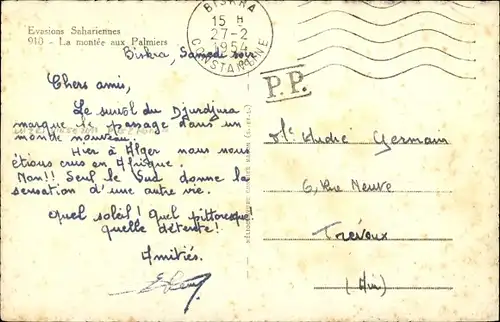 Evasions Sahariennes
910 - La montée aux Palmiers
BISKRA
15 H
27-2
1954
CONSTANTINE
P.P.
Biskra, Samedi soir
Chers amis,
Le survol du Djurdjura
marque le passage dans un
monde nouveau.
Hier à Alger nous nous
étions crus en Afrique.
Non!! Seul le Sud donne la
sensation d'une autre vie.
Quel soleil! Quel pittoresque,
quelle détente!
Amitiés.
Mr André Germain
6, Rue Neuve
Trévoux
(Ain)